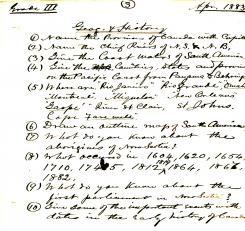 Grade III (3) Nov. 1883
Geog & History
(1) Name the Provinces of Canada with Capitals
(2) Name the Chief Rivers of N.S & N.B,
(3) Give the Coast waters of South America
(4) Give the States and provinces
on the Pacific Coast from Panama to Behring
(5) Where are Rio Janeiro "Rio Grande,
Montreal" "New Orleans"
"Gaspe" River St Clair, St. Johns.
Cape Farewell
(6) Draw an outline map of South America
(7) What do you know about the
aborigines of Nova Scotia?
(8) What occurred in 1604, 1620, 1654,
1710, 1864,
1882.
(9) What do you know about the
first parliament in Nova Scotia
(10) Give some of the important events with
dates in the early history of Canada